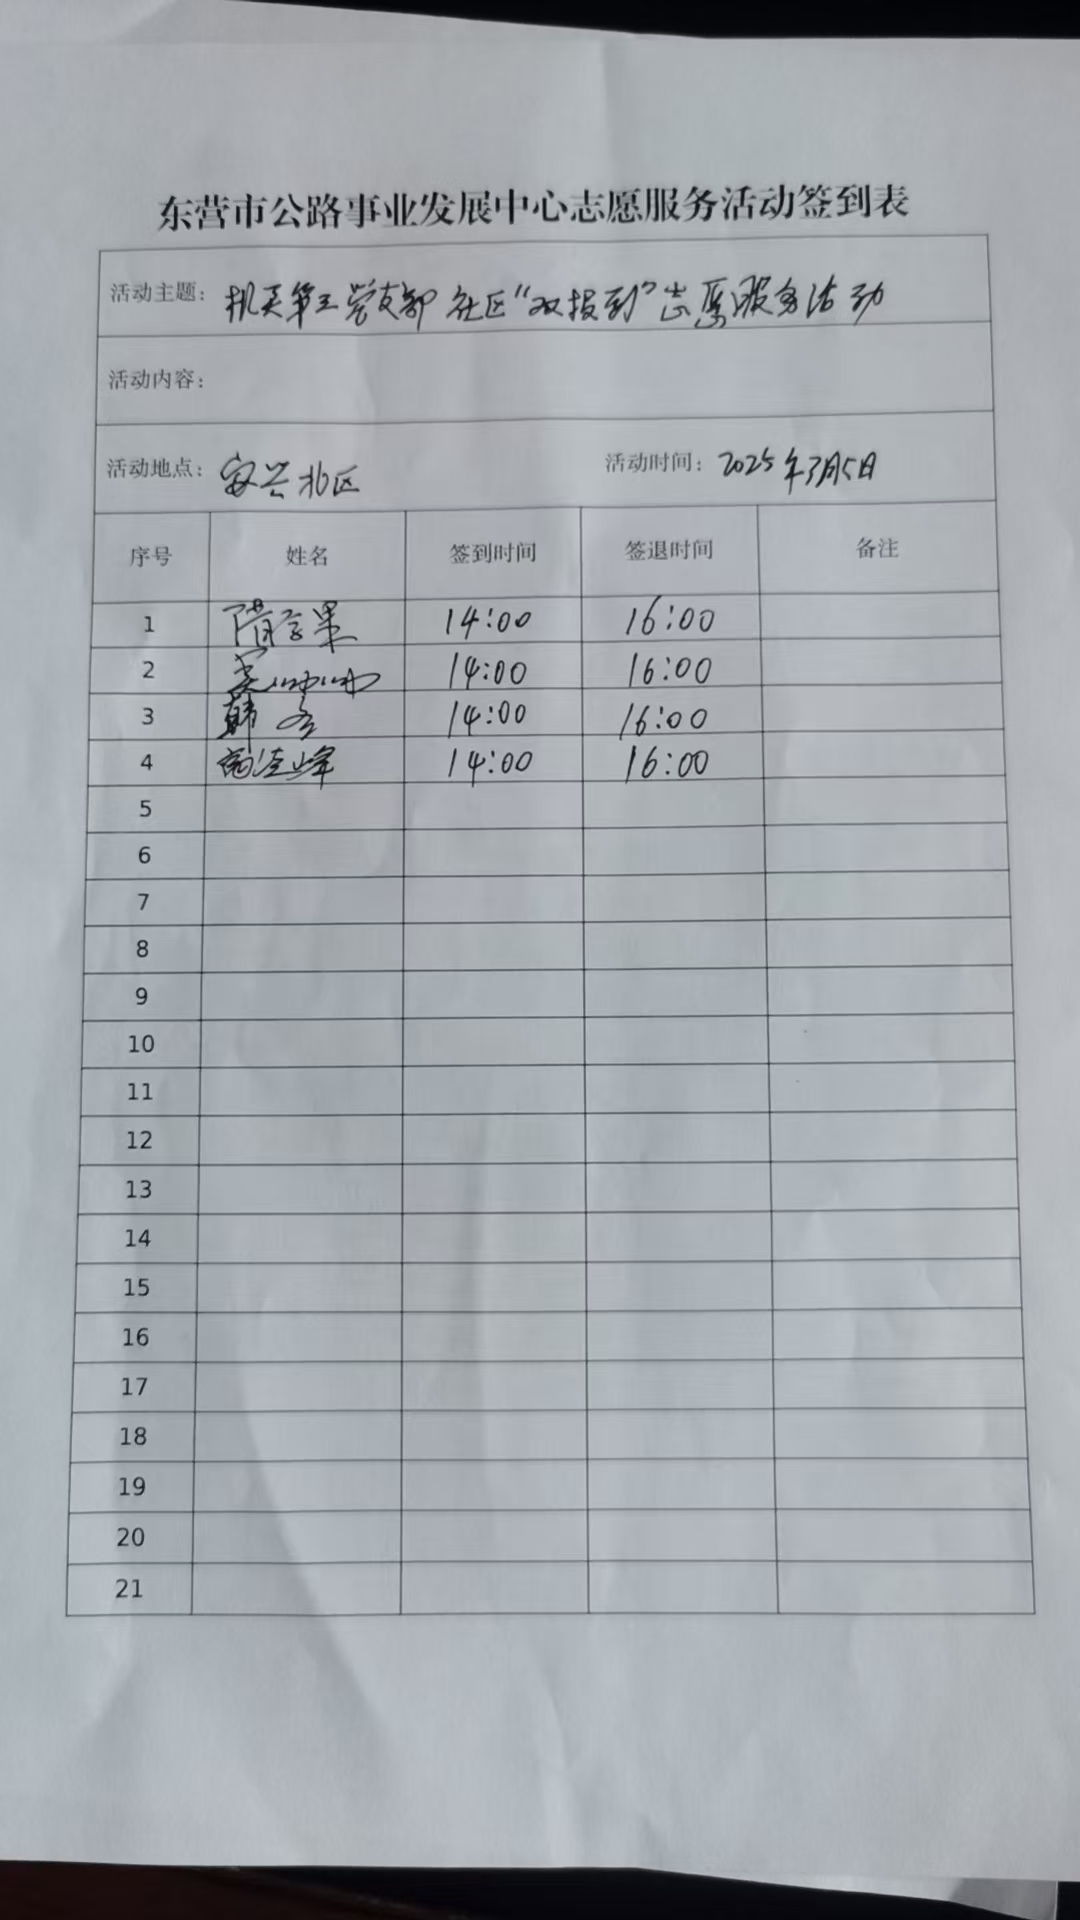 东营市公路事业发展中心志愿服务活动签到表
活动主题: 机关第三党支部 社区“双报到”志愿服务活动
活动内容:
活动地点: 安兴北区 活动时间: 2025年3月5日
序号 姓名 签到时间 签退时间 备注
1 隋 14:00 16:00
2 14:00 16:00
3 韩 14:00 16:00
4 高 峰 14:00 16:00
5
6
7
8
9
10
11
12
13
14
15
16
17
18
19
20
21